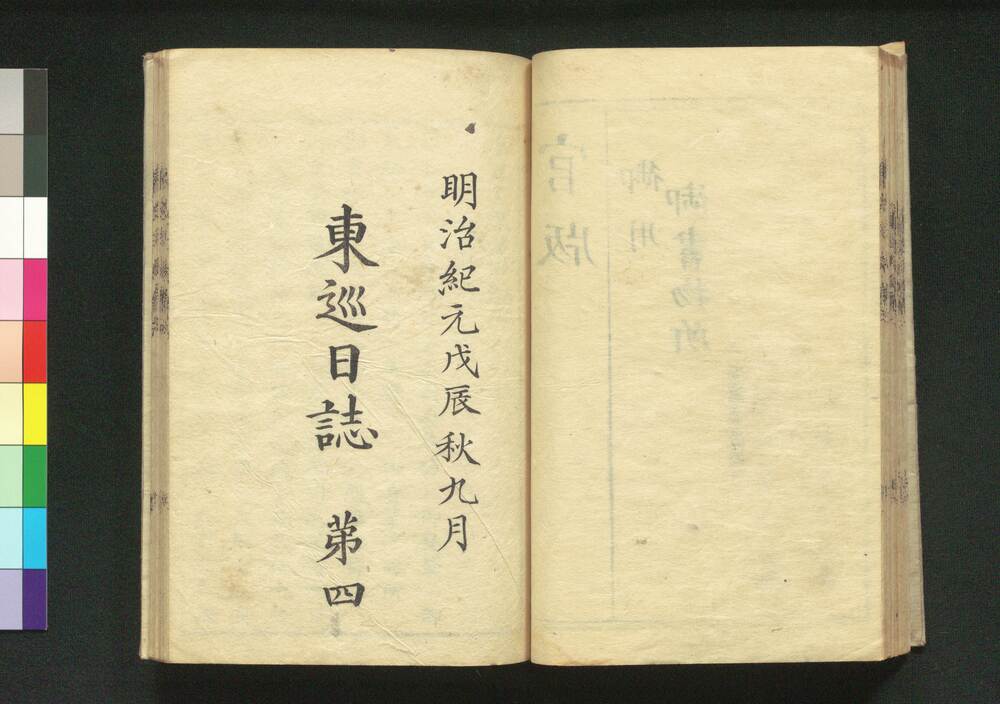 明治紀元戊辰秋九月
東巡日誌　第四
官版
御用
御書物所